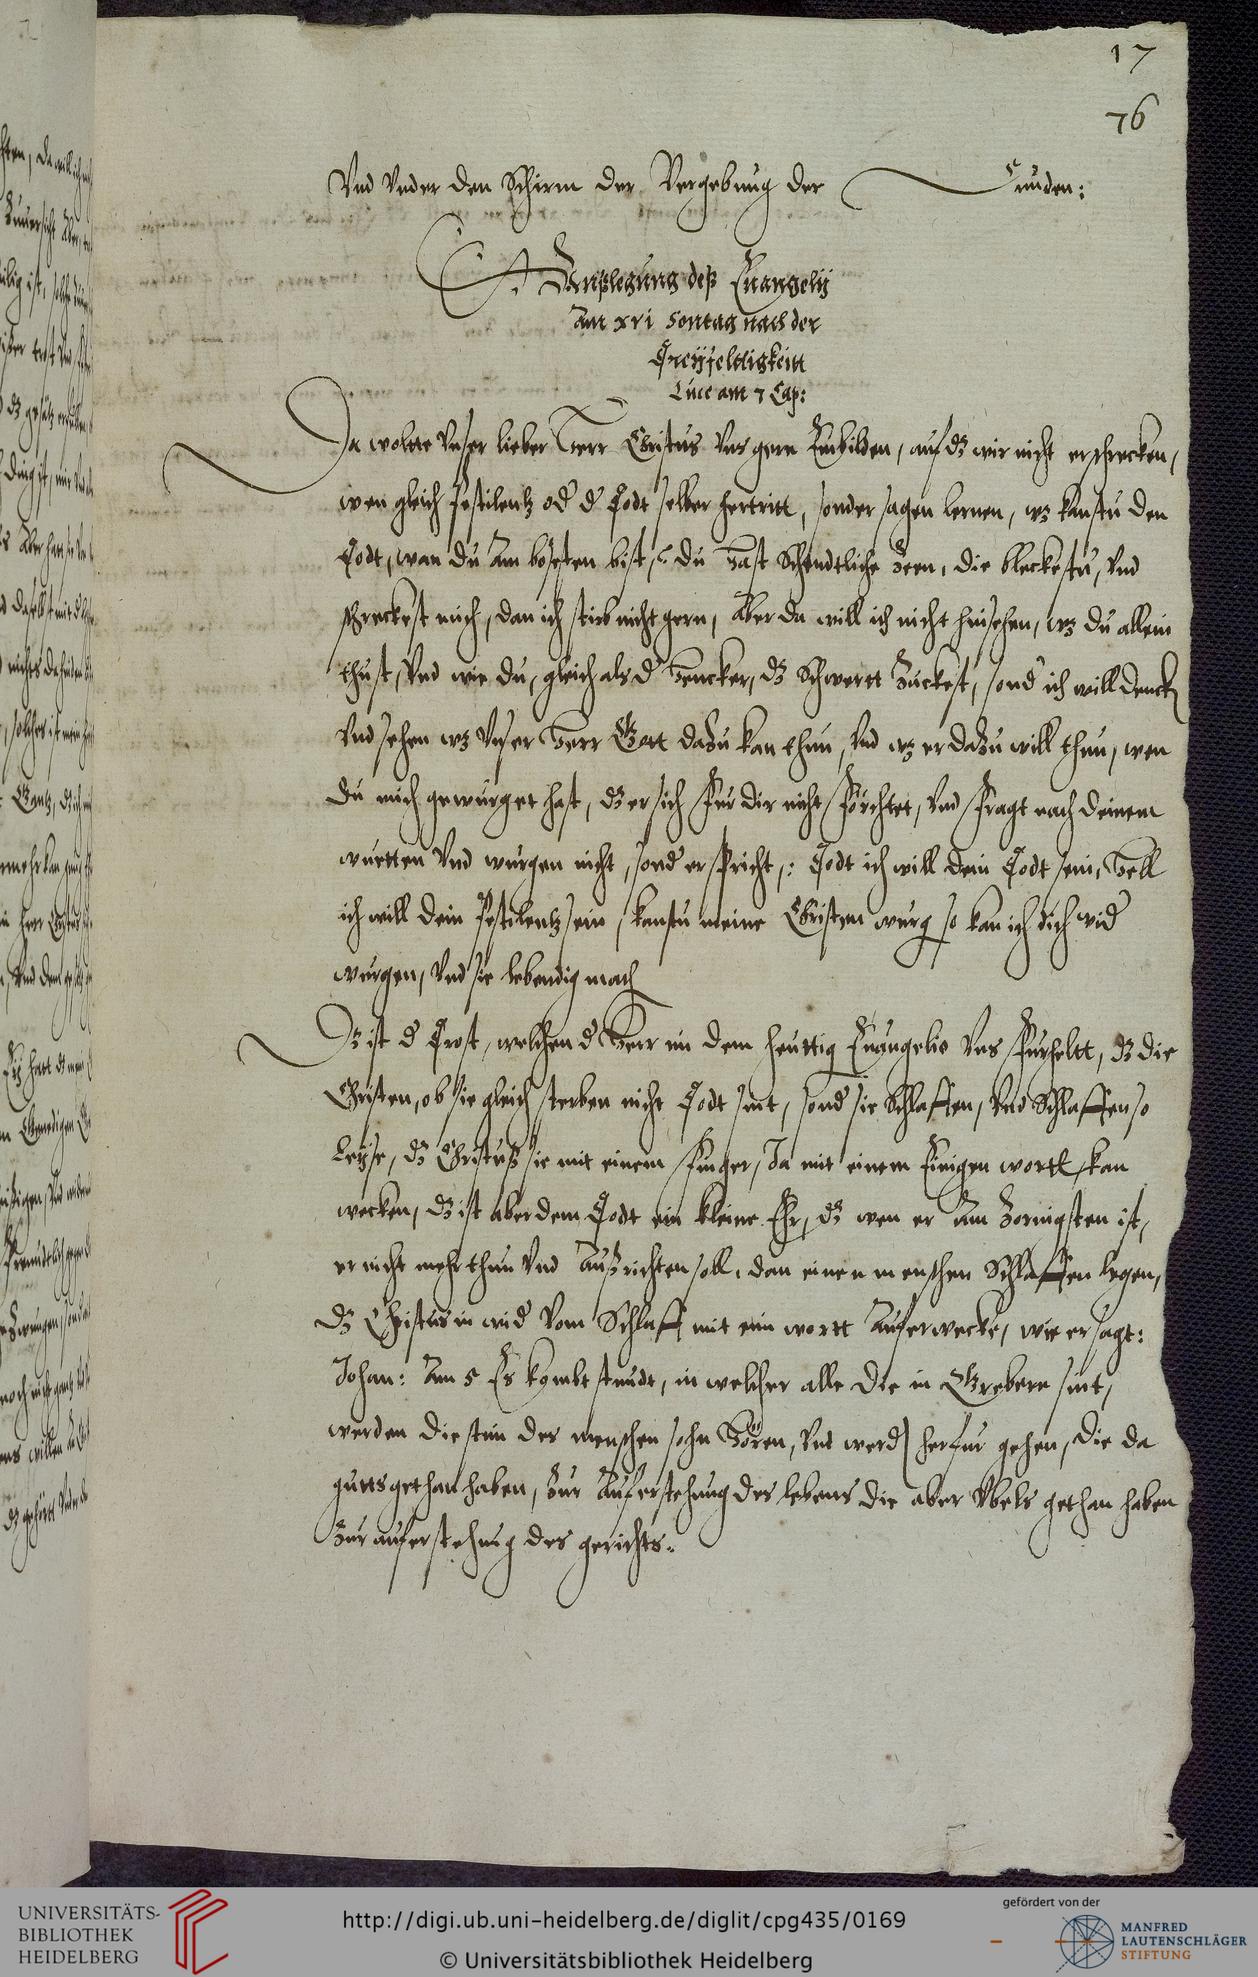 17
76
Vnd Vnder den Schirm der Vergebung der Sunden:
Außlegung deß Euangelij
Am xvi Sontag nach der
Treyfeltigkeitt
Luce am 7 Cap:
Da wolte Vnser lieber Herr Christus Vns gern Einbilden, auf dz wir nicht erschrecken,
wen gleich pestilentz od d Todt selber hertritt, sonder sagen lernen, wz kanstu den
Todt, wan du Am bösesten bist, du Hast Schendtliche Zeen, die bleckestu, Vnd
schreckest mich, dan ich stirb nicht gern, Aber da will ich nicht hinsehen, wz du allein
thust, Vnd wie du, gleich als d Hencker, dz Schwertt Zuckest, sond ich will denck
Vnd sehen wz Vnser Herr Gott dazu kan thun, Vnd wz er dazu will thun, wen
du mich gewurget hast, dz er sich fur dir nicht förchtet, Vnd fragt nach deinem
wuetten Vnd wurgen nicht, sond er spricht,: Todt ich will dein Todt sein, Hell
ich will dein pestilentz sein, kanstu meine Christen wurg so kan ich dich wid
wurgen, Vnd sie lebendig mach
Dz ist d Trost, welchen d Herr in dem heuttig Euangelio Vns furheltt, dz die
Christen, ob sie gleich sterben nicht Todt sint, sond sie Schlaffen, Vnd Schlaffen so
Leyse, dz Christus sie mit einem finger, Ja mit einem Einigen wortt kan
wecken, dz ist aber dem Todt ein kleine Ehr, dz wen er Am Zornigsten ist,
er nicht mehr thun Vnd Außrichten soll, dan einen menschen Schlaffen legen,
dz Christus in wid Vom Schlaff mit eim wortt Auferwecke, wie er sagt:
Johan: Am 5 Es kombt stundt, in welcher alle die in Grebern sint,
werden die stim des menschen sohn Hören, Vnd werd herfur gehen, die da
gutts gethan haben, Zur Auferstehung des lebens die aber Vbels gethan haben
Zur auferstehung des gerichts.
UNIVERSITÄTS-
BIBLIOTHEK
HEIDELBERG
http://digi.ub.uni-heidelberg.de/diglit/cpg435/0169
© Universitätsbibliothek Heidelberg
gefördert von der
MANFRED
LAUTENSCHLÄGER
STIFTUNG